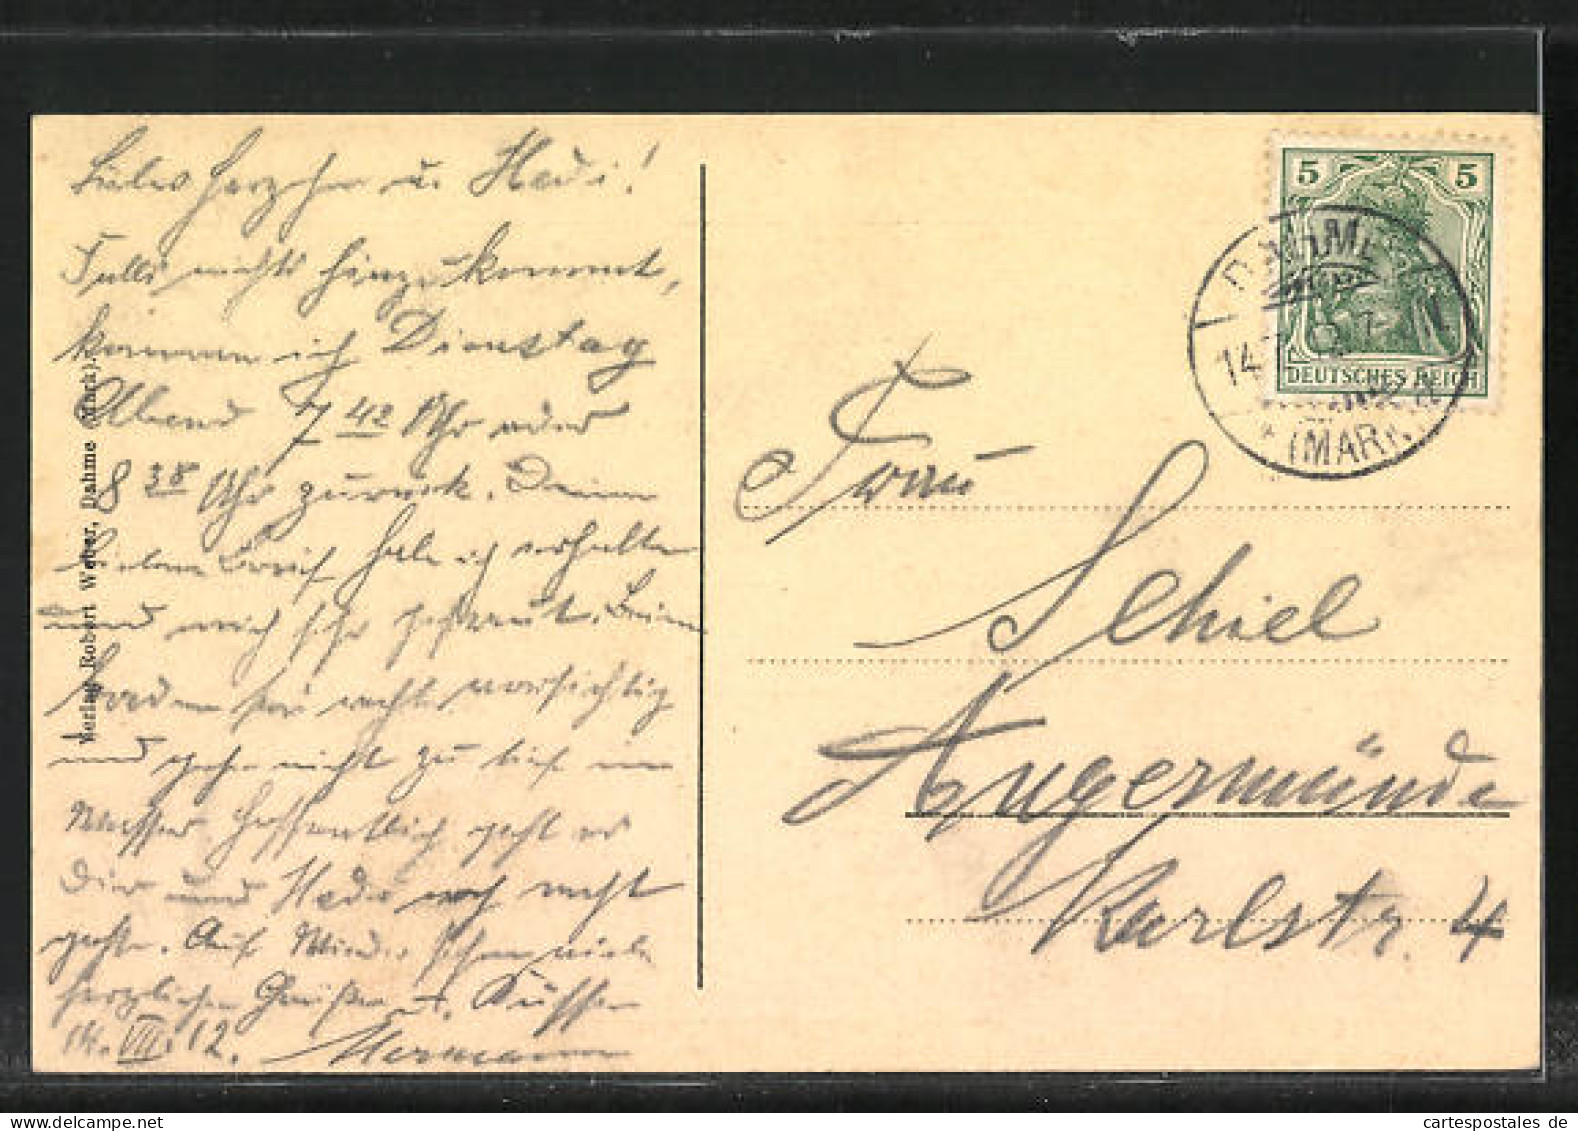 Liebes Herzchen u. Hedi!
Falls nichts hinzukommt,
komme ich Dienstag
Abend 7 42 Uhr oder
8 38 Uhr zurück. Deinen
lieben Brief habe ich erhalten
und mich sehr gefreut. Beim
Baden sei recht vorsichtig
und gehe nicht zu tief ins
Wasser. Hoffentlich geht es
Dir und Hedi noch recht
gut. Auf Wiedersehen viele
herzlichen Grüße u. Küsse
14. VII. 12. Hermann
Verlag Robert Weber, Dahme (Mark).
5 5
DEUTSCHES REICH
DAHME
14
(MARK)
Frau
Schiel
Angermünde
Karlstr. 4
cartespostales.de